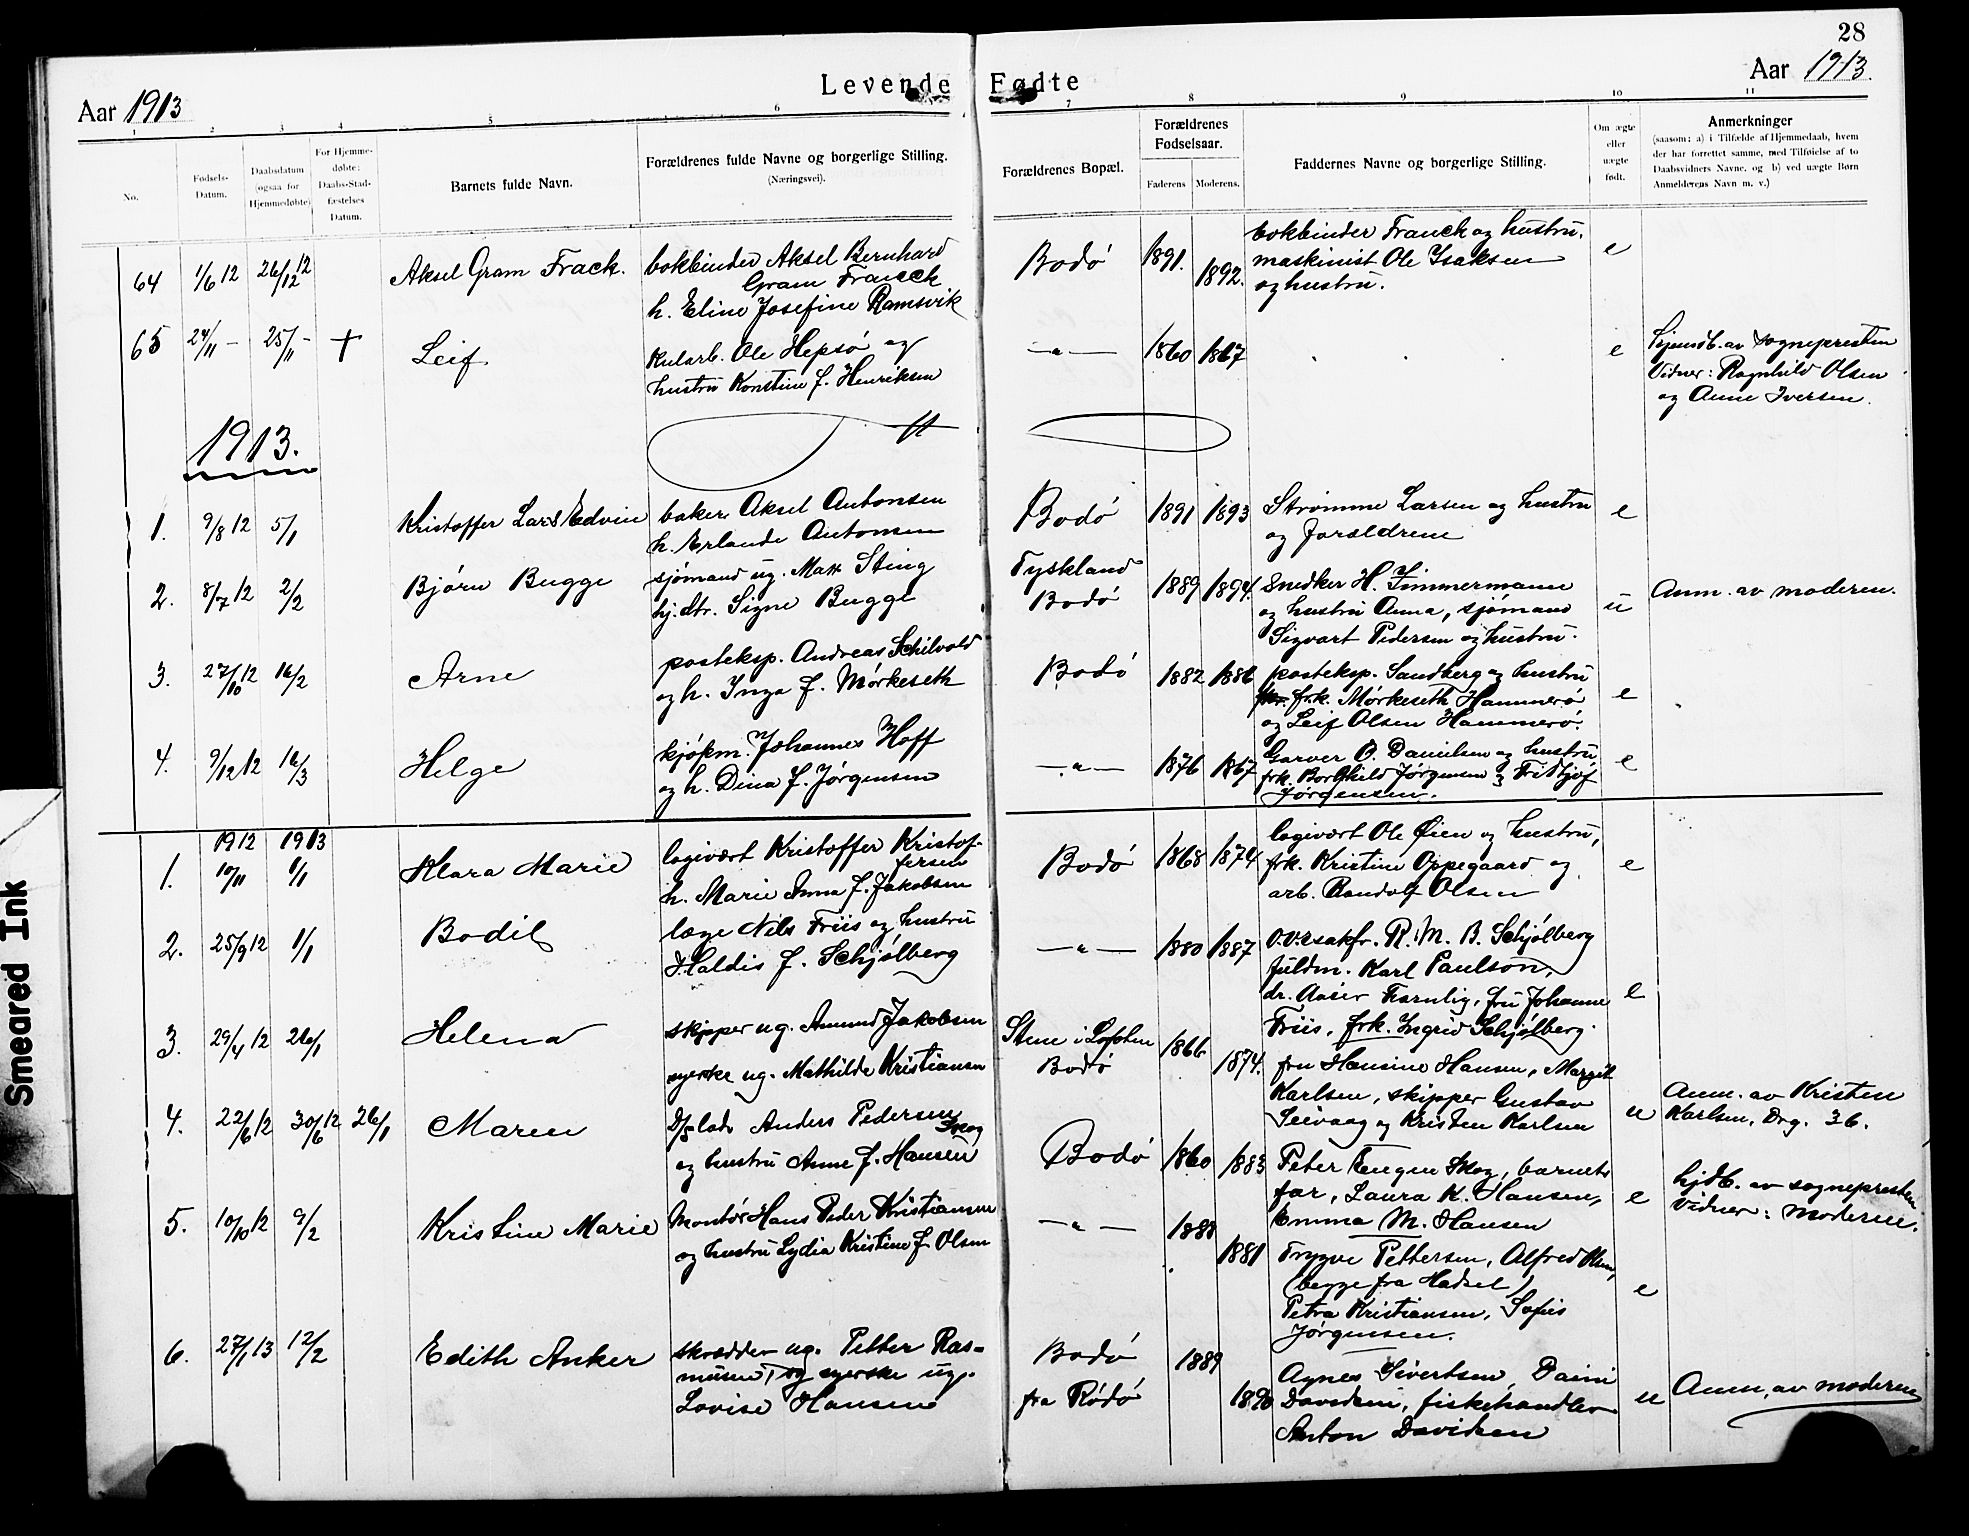 28
Levende Fødte
Aar 1913
Aar 1913.
1 2 3 4 5 6 7 8 9 10 11
No.
Fødsels-
Datum.
Daabsdatum
(ogsaa for
Hjemmedøbte)
For Hjemme-
døbte:
Daabs-Stad-
fæstelses
Datum.
Barnets fulde Navn.
Forældrenes fulde Navne og borgerlige Stilling.
(Næringsvei).
Forældrenes Bopæl.
Forældrenes
Fødselsaar.
Faderens Moderens.
Faddernes Navne og borgerlige Stilling.
Om ægte
eller
uægte
født.
Anmerkninger
(saasom: a) i Tilfælde af Hjemmedaab, hvem
der har forrettet samme, med Tilføielse af to
Daabsvidners Navne, og b) ved uægte Børn
Anmelderens Navn m. v.)
64 1/6 12 26/12 12 Aksel Gram Frack.
bokbinder Aksel Bernhard
Gram Franck
h. Eline Josefine Ramsvik
Bodö 1891. 1892.
bokbinder Franck og hustru.
maskinist Ole Isaksen
og hustru.
e
65 24/11 – 25/11 – + Leif
Kularb. Ole Hepsö og
hustru Konstine f. Henriksen
—„— 1860 1867
e
Hjemdb. av sognepresten
Vidner: Ragnhild Olsen
og Anne Iversen.
1913.
1. 9/8 12 5/1 Kristoffer Lars Edvin
baker Aksel Antonsen
h. Erlande Antonsen
Bodö 1891 1893
Strømme Larsen og hustru
og forældrene
e
2. 8/7 12 2/2 Björn Bugge
sjömand ug. Max Sting
hj. dtr. Signe Bugge
Tyskland
Bodö
1889 1894.
Snedker H. Zimmermann
og hustru Anna, sjömand
Sigvart Pedersen og hustru.
u
Anm. av moderen.
3. 27/10 12 16/2 Arne
posteksp. Andreas Schilvold
og h. Inga f. Mörkeseth
Bodö 1882 1886
posteksp. Sandberg og hustru
frk. Mörkeseth Hammerö
og Leif Olsen Hammerö.
e
4. 9/12 12 16/3 Helge
kjöpm. Johannes Hoff
og h. Dina f. Jörgensen
—„— 1876 1867
Garver O. Danielsen og hustru,
frk. Borghild Jörgensen og Fridtjof
Jörgensen.
e
1912 1913
1. 10/11 1/1 Klara Marie
logivært Kristoffer Kristof-
fersen
h. Marie Anna f. Jakobsen
Bodö 1868 1874
logivært Ole Øien og hustru,
frk. Kristine Oppegaard og
arb. Randolf Olsen
e
2. 25/9 12 1/1 Bodil
læge Nils Friis og hustru
Haldis f. Schjölberg
—„— 1880 1887
o.r.sakfr. R. M. B. Schjölberg
fuldm. Karl Paulson,
dr. Fru Johanne
Friis, frk. Ingrid Schjölberg.
e
3. 29/4 12 26/1 Helena
skipper ug. Amund Jakobsen
syerske ug. Mathilde Kristiansen
Stene i Lofoten
Bodö
1866 1874.
fru Hansine Hansen, Margit
Karlsen, skipper Gustav
Seivaag og Kristen Karlsen
u
Anm. av Kristen
Karlsen, Drg. 36.
4. 22/6 12 30/6 12 26/1 Maren
Anders Pedersen
Skog
og hustru Anne f. Hansen
Bodö 1860 1883
Peter Eugen Skog, barnets
far, Laura K. Hansen,
Emma M. Hansen
e
hjdb. av sognepresten
Vidner: Moderen.
5. 10/10 12 9/2 Kristine Marie
Montör Hans Peder Kristiansen
og hustru Lydia Kristine f. Olsen
—„— 1888 1881
Trygve Pettersen, Alfred Olsen,
(begge fra Hadsel)
Petra Kristiansen, Sofus
Jörgensen.
e
6. 27/1 13 12/2 Edith Anker
skrædder ug. Petter Ras-
mussen, og syerske ug.
Lovise Hansen
Bodö
fra Rödö
1889 1890
Agnes Sivertsen, Daini
Davidsen, fiskehandler
Anton Davidsen
u
Anm. av moderen
Smeared Ink